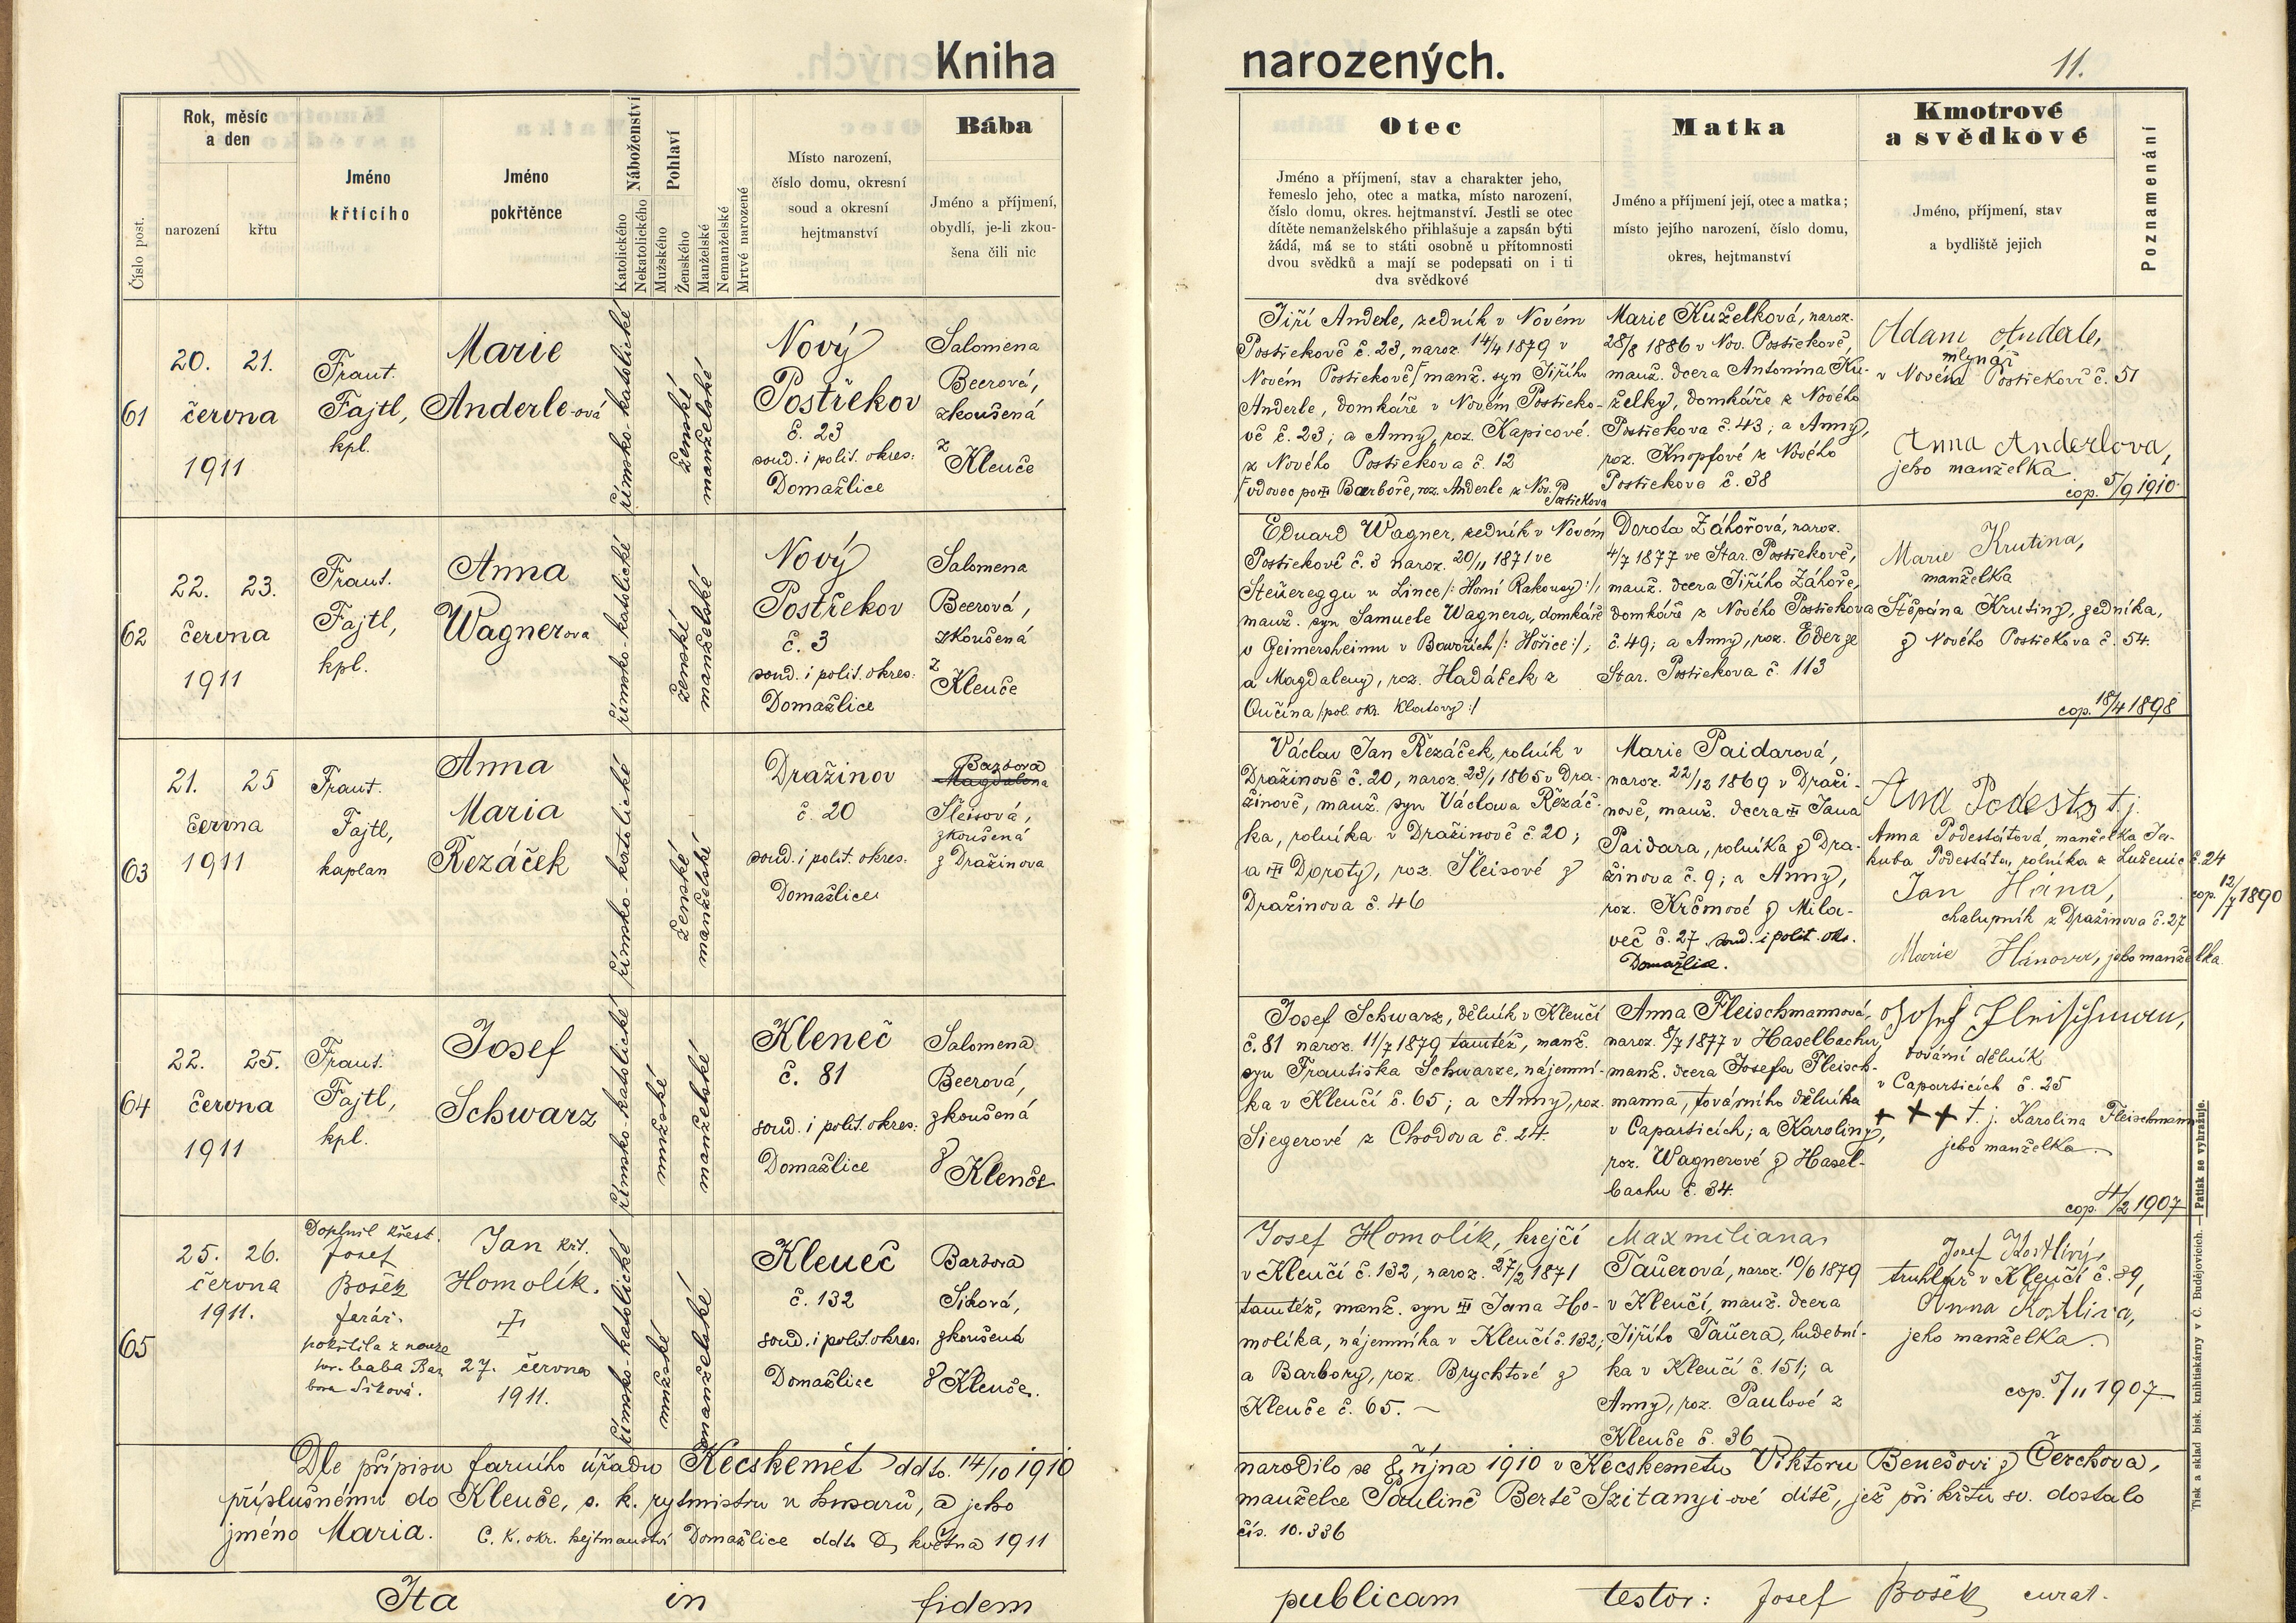 Kniha
narozených.
11.
Číslo post.
Rok, měsíc
a den
narození
křtu
Jméno
křtícího
Jméno
pokřtěnce
Náboženství
Katolického
Nekatolického
Pohlaví
Mužského
Ženského
Manželské
Nemanželské
Mrtvé narozené
Místo narození,
číslo domu, okresní
soud a okresní
hejtmanství
Bába
Jméno a příjmení,
obydlí, je-li zkou-
šena čili nic
Otec
Jméno a příjmení, stav a charakter jeho,
řemeslo jeho, otec a matka, místo narození,
číslo domu, okres. hejtmanství. Jestli se otec
dítěte nemanželského přihlašuje a zapsán býti
žádá, má se to státi osobně u přítomnosti
dvou svědků a mají se podepsati on i ti
dva svědkové
Matka
Jméno a příjmení její, otec a matka;
místo jejího narození, číslo domu,
okres, hejtmanství
Kmotrové
a svědkové
Jméno, příjmení, stav
a bydliště jejich
Poznamenání
61
20. 21.
června
1911
Frant.
Fajtl,
kpl.
Marie
Anderle-ová
římsko-katolické
ženské
manželské
Nový
Postřekov
č. 23
soud. i polit. okres:
Domažlice
Salomena
Beerová,
zkoušená
z
Klenče
Jiří Anderle, zedník v Novém
Postřekově č. 23, naroz. 14/4 1879 v
Novém Postřekově/ manž. syn Jiřího
Anderle, domkáře v Novém Postřeko-
vě č. 23; a Anny, roz. Kapicové.
z Nového Postřekova č. 12
/vdovec po Barboře, roz. Anderle z Nov.
Postřekova
Marie Kuželková, naroz.
28/8 1886 v Nov. Postřekově,
manž. dcera Antonína Ku-
želky, domkáře z Nového
Postřekova č. 43; a Anny,
roz. Knopfové z Nového
Postřekova č. 38
Adam Anderle,
mlynář
v Novém Postřekově č. 51
Anna Anderlova,
jeho manželka
cop. 5/9 1910
62
22. 23.
června
1911
Frant.
Fajtl,
kpl.
Anna
Wagnerova
římsko-katolické
ženské
manželské
Nový
Postřekov
č. 3
soud. i polit. okres:
Domažlice
Salomena
Beerová,
zkoušená
z
Klenče
Eduard Wagner, zedník v Novém
Postřekově č. 3 naroz. 20/11 1871 ve
Steüereggu u Lince /: Horní Rakousy :/,
manž. syn Samuele Wagnera, domkáře
v Geimersheimu v Bavořích /: Hořice :/;
a Magdaleny, roz. Hadáček z
Oučína /pol. okr. Klatovy :/
Dorota Záhořová, naroz.
4/7 1877 ve Star. Postřekově,
manž. dcera Jiřího Záhoře,
domkáře z Nového Postřekova
č. 49; a Anny, roz. Eder ze
Star. Postřekova č. 113
Marie Krutina,
manželka
Štěpána Krutiny, zedníka,
z Nového Postřekova č. 54.
cop. 18/4 1898
63
21. 25
června
1911
Frant.
Fajtl,
kaplan
Anna
Maria
Řezáček
římsko-katolické
ženské
manželské
Dražinov
č. 20
soud. i polit. okres.
Domažlice
Barbora
Magdalena
Šleisová,
zkoušená
z Dražinova
Václav Jan Řezáček, rolník v
Dražinově č. 20, naroz. 23/1 1865 v Dra-
žinově, manž. syn Václava Řezáč-
ka, rolníka v Dražinově č. 20;
a Doroty, roz. Šleisové z
Dražinova č. 46
Marie Paidarová,
naroz. 22/12 1869 v Draži-
nově, manž. dcera Jana
Paidara, rolníka z Dra-
žinova č. 9; a Anny,
roz. Krčmové z Mila-
več č. 27. soud. i polit. okr.
Domažlice.
Ana Podesta t. j.
Anna Podestátová, manželka Ja-
kuba Podestáta, rolníka z Luženic č. 24
Jan Hána,
chalupník z Dražinova č. 27
Marie Hánova, jeho manželka
cop. 12/7 1890
64
22. 25.
června
1911
Frant.
Fajtl,
kpl.
Josef
Schwarz
římsko-katolické
mužské
manželské
Kleneč
č. 81
soud. i polit. okres:
Domažlice
Salomena
Beerová,
zkoušená
z
Klenče
Josef Schwarz, dělník v Klenčí
č. 81 naroz. 11/7 1879 tamtéž, manž.
syn Františka Schwarze, nájemní-
ka v Klenčí č. 65; a Anny, roz.
Siegerové z Chodova č. 24.
Anna Fleischmannová,
naroz. 8/7 1877 v Haselbachu,
manž. dcera Josefa Fleisch-
manna, továrního dělníka
v Caparticích; a Karoliny,
roz. Wagnerové z Hasel-
bachu č. 34.
Josef Fleischman,
tovární dělník
v Caparticích č. 25
+ + + t. j. Karolina Fleischmann
jeho manželka.
cop. 4/2 1907
65
25. 26.
června
1911.
Doplnil křest.
Josef
Bošek
farář.
pokřtila z nouze
por. baba Bar
bora Siková.
Jan křt.
Homolík.
27. června
1911.
římsko-katolické
mužské
manželské
Kleneč
č. 132
soud. i polit. okres.
Domažlice
Barbora
Siková,
zkoušená
z Klenče.
Josef Homolík, krejčí
v Klenčí č. 132, naroz. 27/2 1871
tamtéž, manž. syn Jana Ho-
molíka, nájemníka v Klenčí č. 132;
a Barbory, roz. Brychtové z
Klenče č. 65. –
Maxmiliana
Taüerová, naroz. 10/6 1879
v Klenčí, manž. dcera
Jiřího Taüera, hudební-
ka v Klenčí č. 151; a
Anny, roz. Paulové z
Klenče č. 36
Josef Kostliný,
truhlář v Klenčí č. 89,
Anna Kostliva,
jeho manželka.
cop. 5/11 1907
Dle přípisu farního úřadu Kecskemét ddto. 14/10 1910
narodilo se října 1910 v Kecskemétu Viktoru Benešovi z Čerchova,
příslušnému do Klenče, c. k. rytmistru u husarů, a jeho
manželce Paulině Bertě Szitanyi-ové dítě, jež při křtu sv. dostalo
jméno Maria. C. K. okr. hejtmanství Domažlice ddto května 1911
čís. 10.336
Ita in fidem publicam testor: Josef Bošek, curat.
Tisk a sklad bisk. knihtiskárny v Č. Budějovicích. — Patisk se vyhražuje.